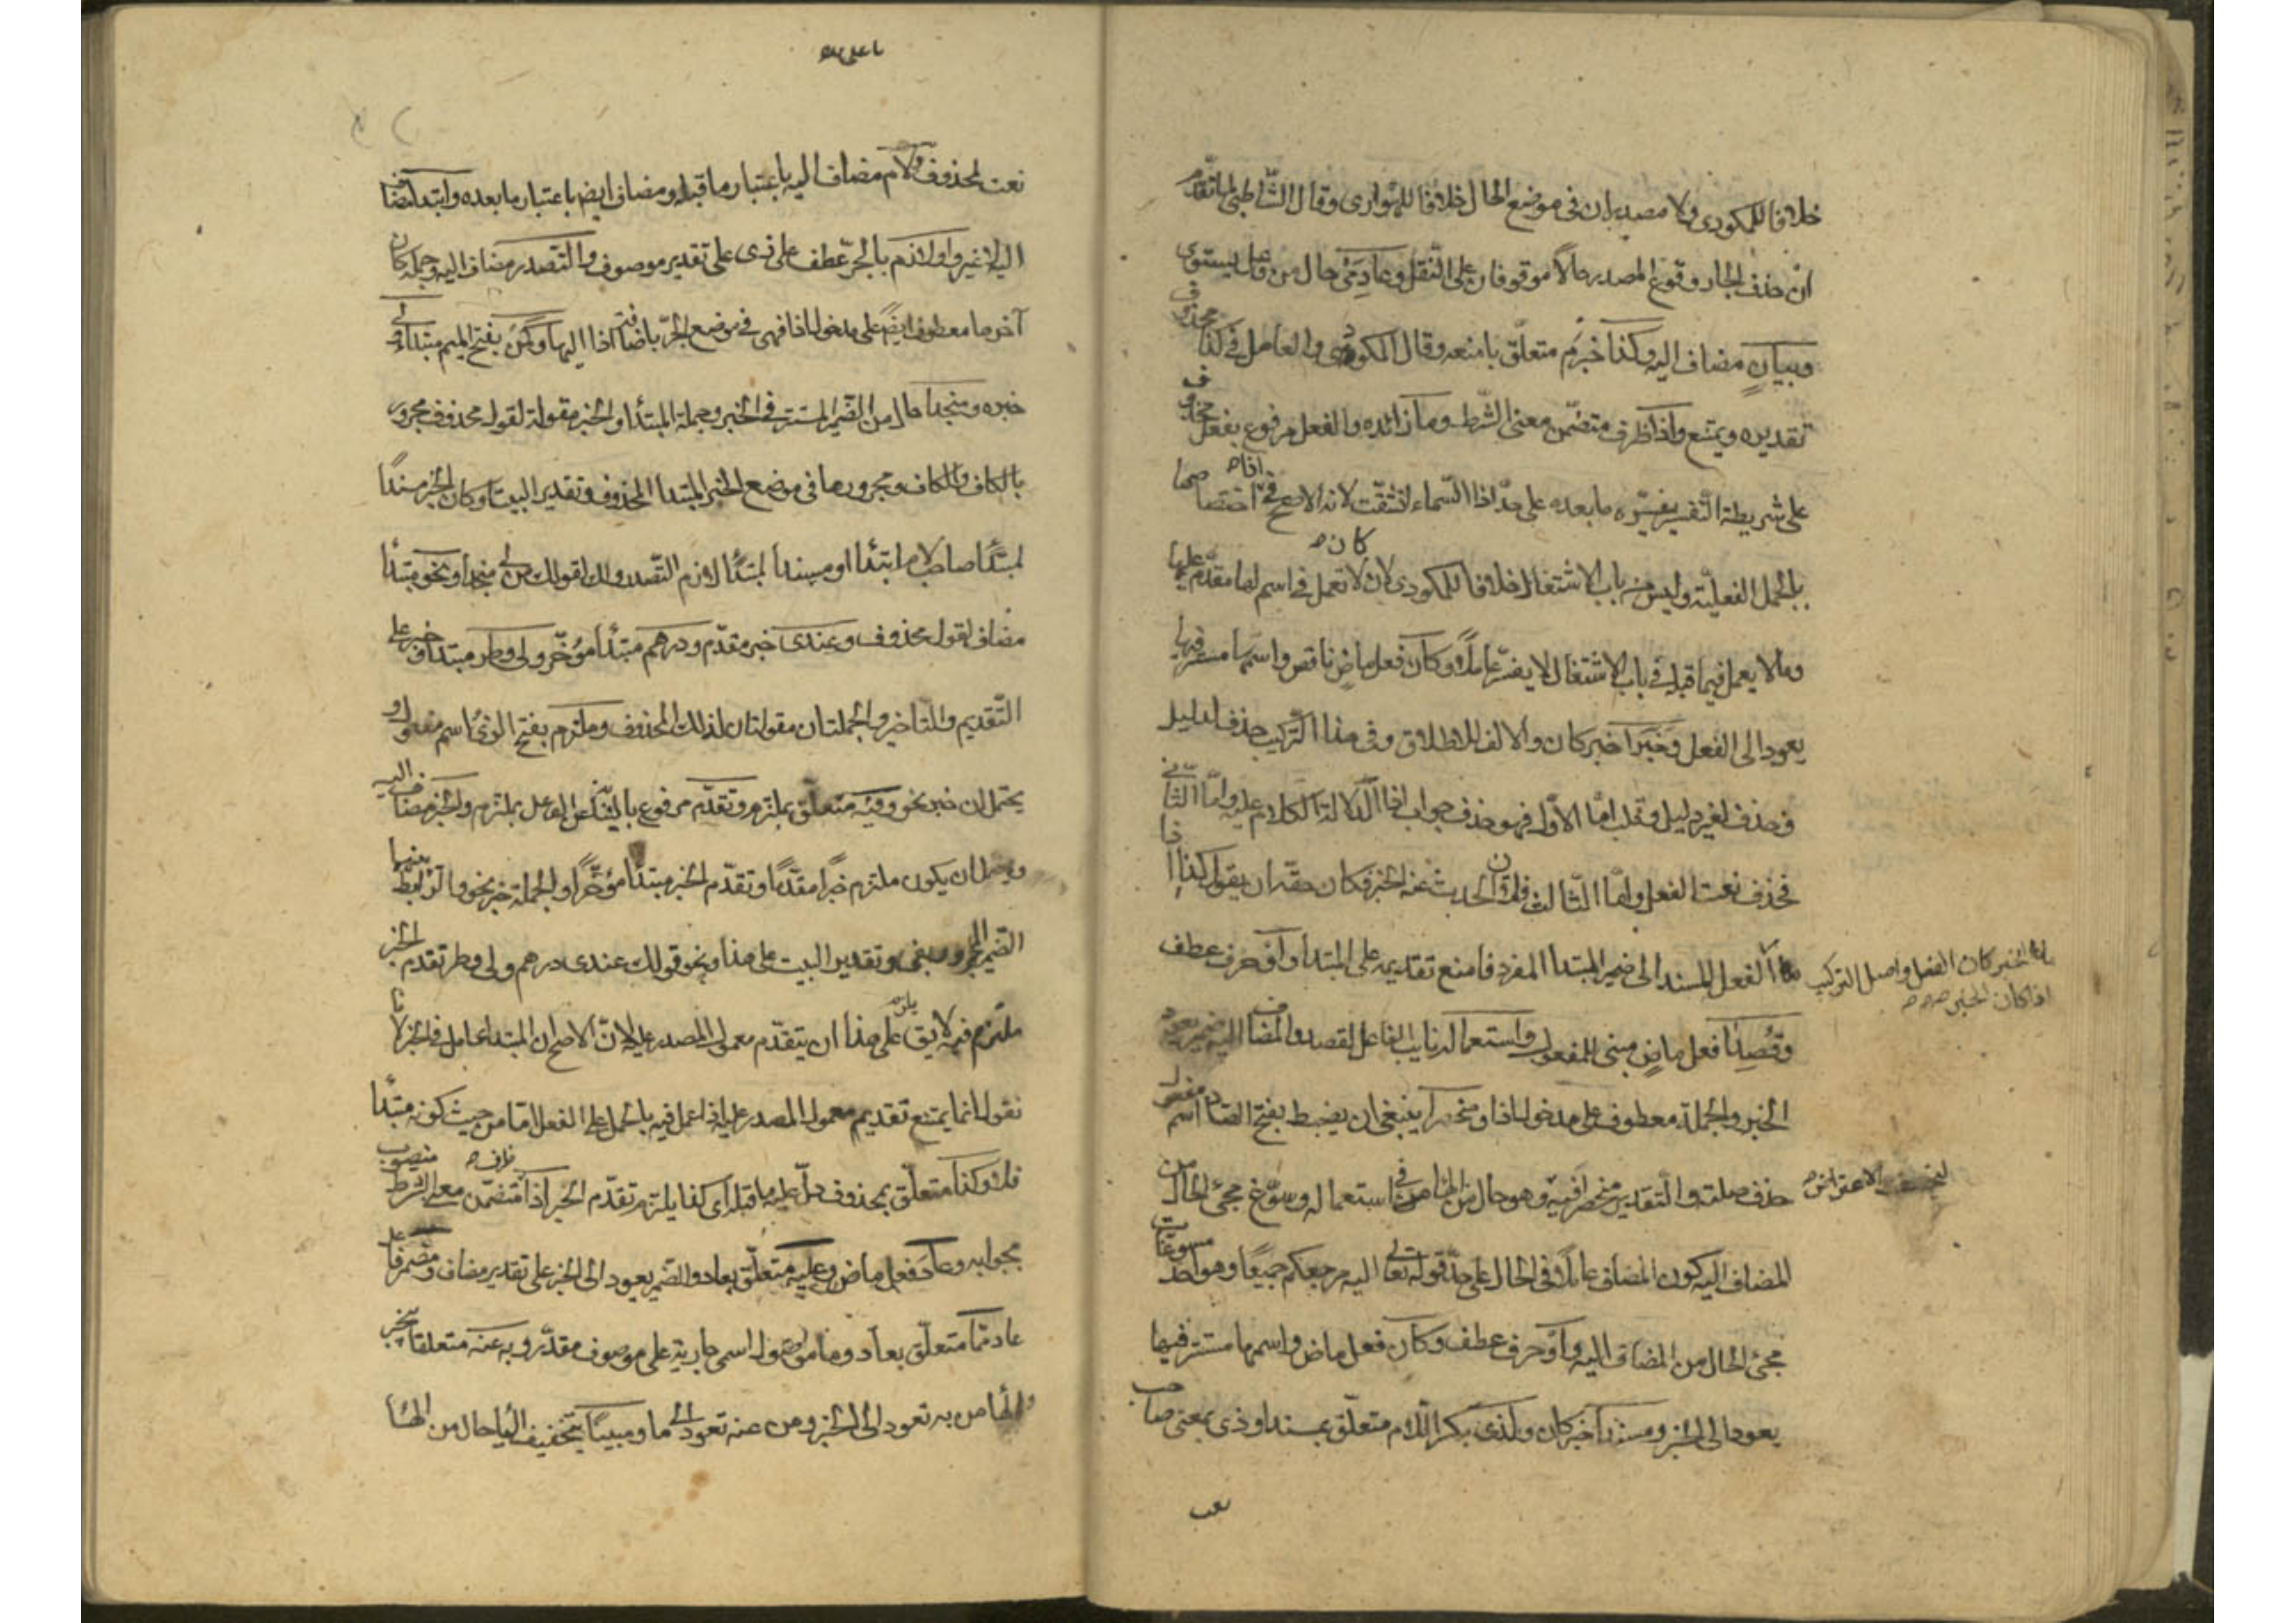 خلافا للمكودى ولا مصدران فى موضع الحال خلافا للهوارى وقال الشاطبى لما تقدم
ان حذف الجار وقوع المصدر حالا موقوفان على النقل وعادمى حال من فاعل يستوى
وبيان مضاف اليه وكذا خبرم متعلق بامنعه وقال المكودى والعامل فى كذا محذوف
تقديره ويمتنع واذا ظرف متضمن معنى الشرط وما زائده والفعل مرفوع بفعل محذوف
على شريطة التفسير يفسره ما بعده على حد اذا السماء انشقت لانه الاصح فى اذا اختصاصها
بالجمل الفعلية وليس من باب الاشتغال خلافا للمكودى لان كان لا تعمل فى اسم لها مقدم عليها
وما لا يعمل فيما قبله فى باب الاشتغال لا يفسر عاملا وكان فعل ماض ناقص واسمها مستتر فيها
يعود الى الفعل وخبرا خبر كان والالف للاطلاق وفى هذا التركيب حذف لدليل
وحذف لغير دليل وقلب اما الاول فهو حذف جواب اذا لدلالة الكلام عليه واما الثانى
فحذف نعت الفعل واما الثالث فلان الحديث عنه الخبر فكان حقه ان يقول كذا اذا
ما الخبر كان الفعل واصل التركيب
اذا كان الخبر
الفعل المسند الى ضمير المبتدا المفرد فامنع تقديمه على المبتدا واو حرف عطف
وقصد فعل ماض مبنى للمفعول واستعماله نايب الفاعل لقصد والمضاف اليه ضمير يعود
الخبر والجملة معطوفة على مدخول اذا ومنحصرا ينبغى ان يضبط بفتح الصاد اسم مفعول
حذف صلته والتقدير منحصرا فيه وهو حال من الهاء من فى استعماله وسوغ مجئ الحال من
المضاف اليه كون المضاف عاملا فى الحال على حد قوله تعالى اليه مرجعكم جميعا وهو احد مسوغات
مجئ الحال من المضاف اليه واو حرف عطف وكان فعل ماض واسمها مستتر فيها
يعود الى الخبر ومسندا خبر كان ولذى بكسر اللام متعلق بمسندا وذى بمعنى صاحب
نعت
نعت لمحذوف ولام مضاف اليه باعتبار ما قبله ومضاف ايضا باعتبار ما بعده وابتدا مضاف
اليه لا غير واو لازم بالجر عطف على ذى على تقدير موصوف والتصدر مضاف اليه وجملة كان
آخر ما معطوفة ايضا على مدخول اذا فهى فى موضع الجر باضافة اذا اليها وكمن بفتح الميم مبتدا ولى
خبره ومنجدا حال من الضمير المستتر فى الخبر وجملة المبتدا والخبر مقولة لقول محذوف مجرور
بالكاف والكاف ومجرورها فى موضع الخبر لمبتدا المحذوف وتقدير البيت او كان الخبر مسندا
لمبتدا صاحب لام ابتدا او مسندا لمبتدا لازم التصدر وذلك كقولك من لى منجدا ونحو مبتدا
مضاف لقول محذوف وعندى خبر مقدم ودرهم مبتدا مؤخر ولى وطر مبتدا وخبر على
التقديم والتاخير والجملتان مقولتان لذلك المحذوف وملتزم بفتح الزى اسم مفعول و
يحتمل ان خبر نحو وفيه متعلق بملتزم وتقدم مرفوع بالنيابة عن الفاعل بملتزم والخبر مضاف اليه
ويحتمل ان يكون ملتزم خبرا مقدما وتقدم الخبر مبتدا مؤخرا والجملة خبر نحو والرابط بينهما
الضمير المجرور بفى وتقدير البيت على هذا ونحو قولك عندى درهم ولى وطر تقدم الخبر
ملتزم فيه لا يق يلزم على هذا ان يتقدم معمول المصدر عليه لان الاصح ان المبتدا عامل فى الخبر لانا
نقول انما يمتنع تقديم معمول المصدر عليه اذا عمل فيه بالحمل على الفعل اما من حيث كونه مبتدا
فلا وكذا متعلق بمحذوف دل عليه ما قبله اى كذا يلزم تقدم الخبر اذا ظرف متضمن معنى الشرط منصوب
بجوابه وعاد فعل ماض وعليه متعلق بعاد والضمير يعود الى الخبر على تقدير مضاف ومضمر فاعل
عاد مما متعلق بعاد وما موصول اسمى جارية على موصوف مقدر وبه عنه متعلقان بيخبر
والها من به تعود الى الخبر ومن عنه تعود الى ما ومبينا بتخفيف اليا حال من الها